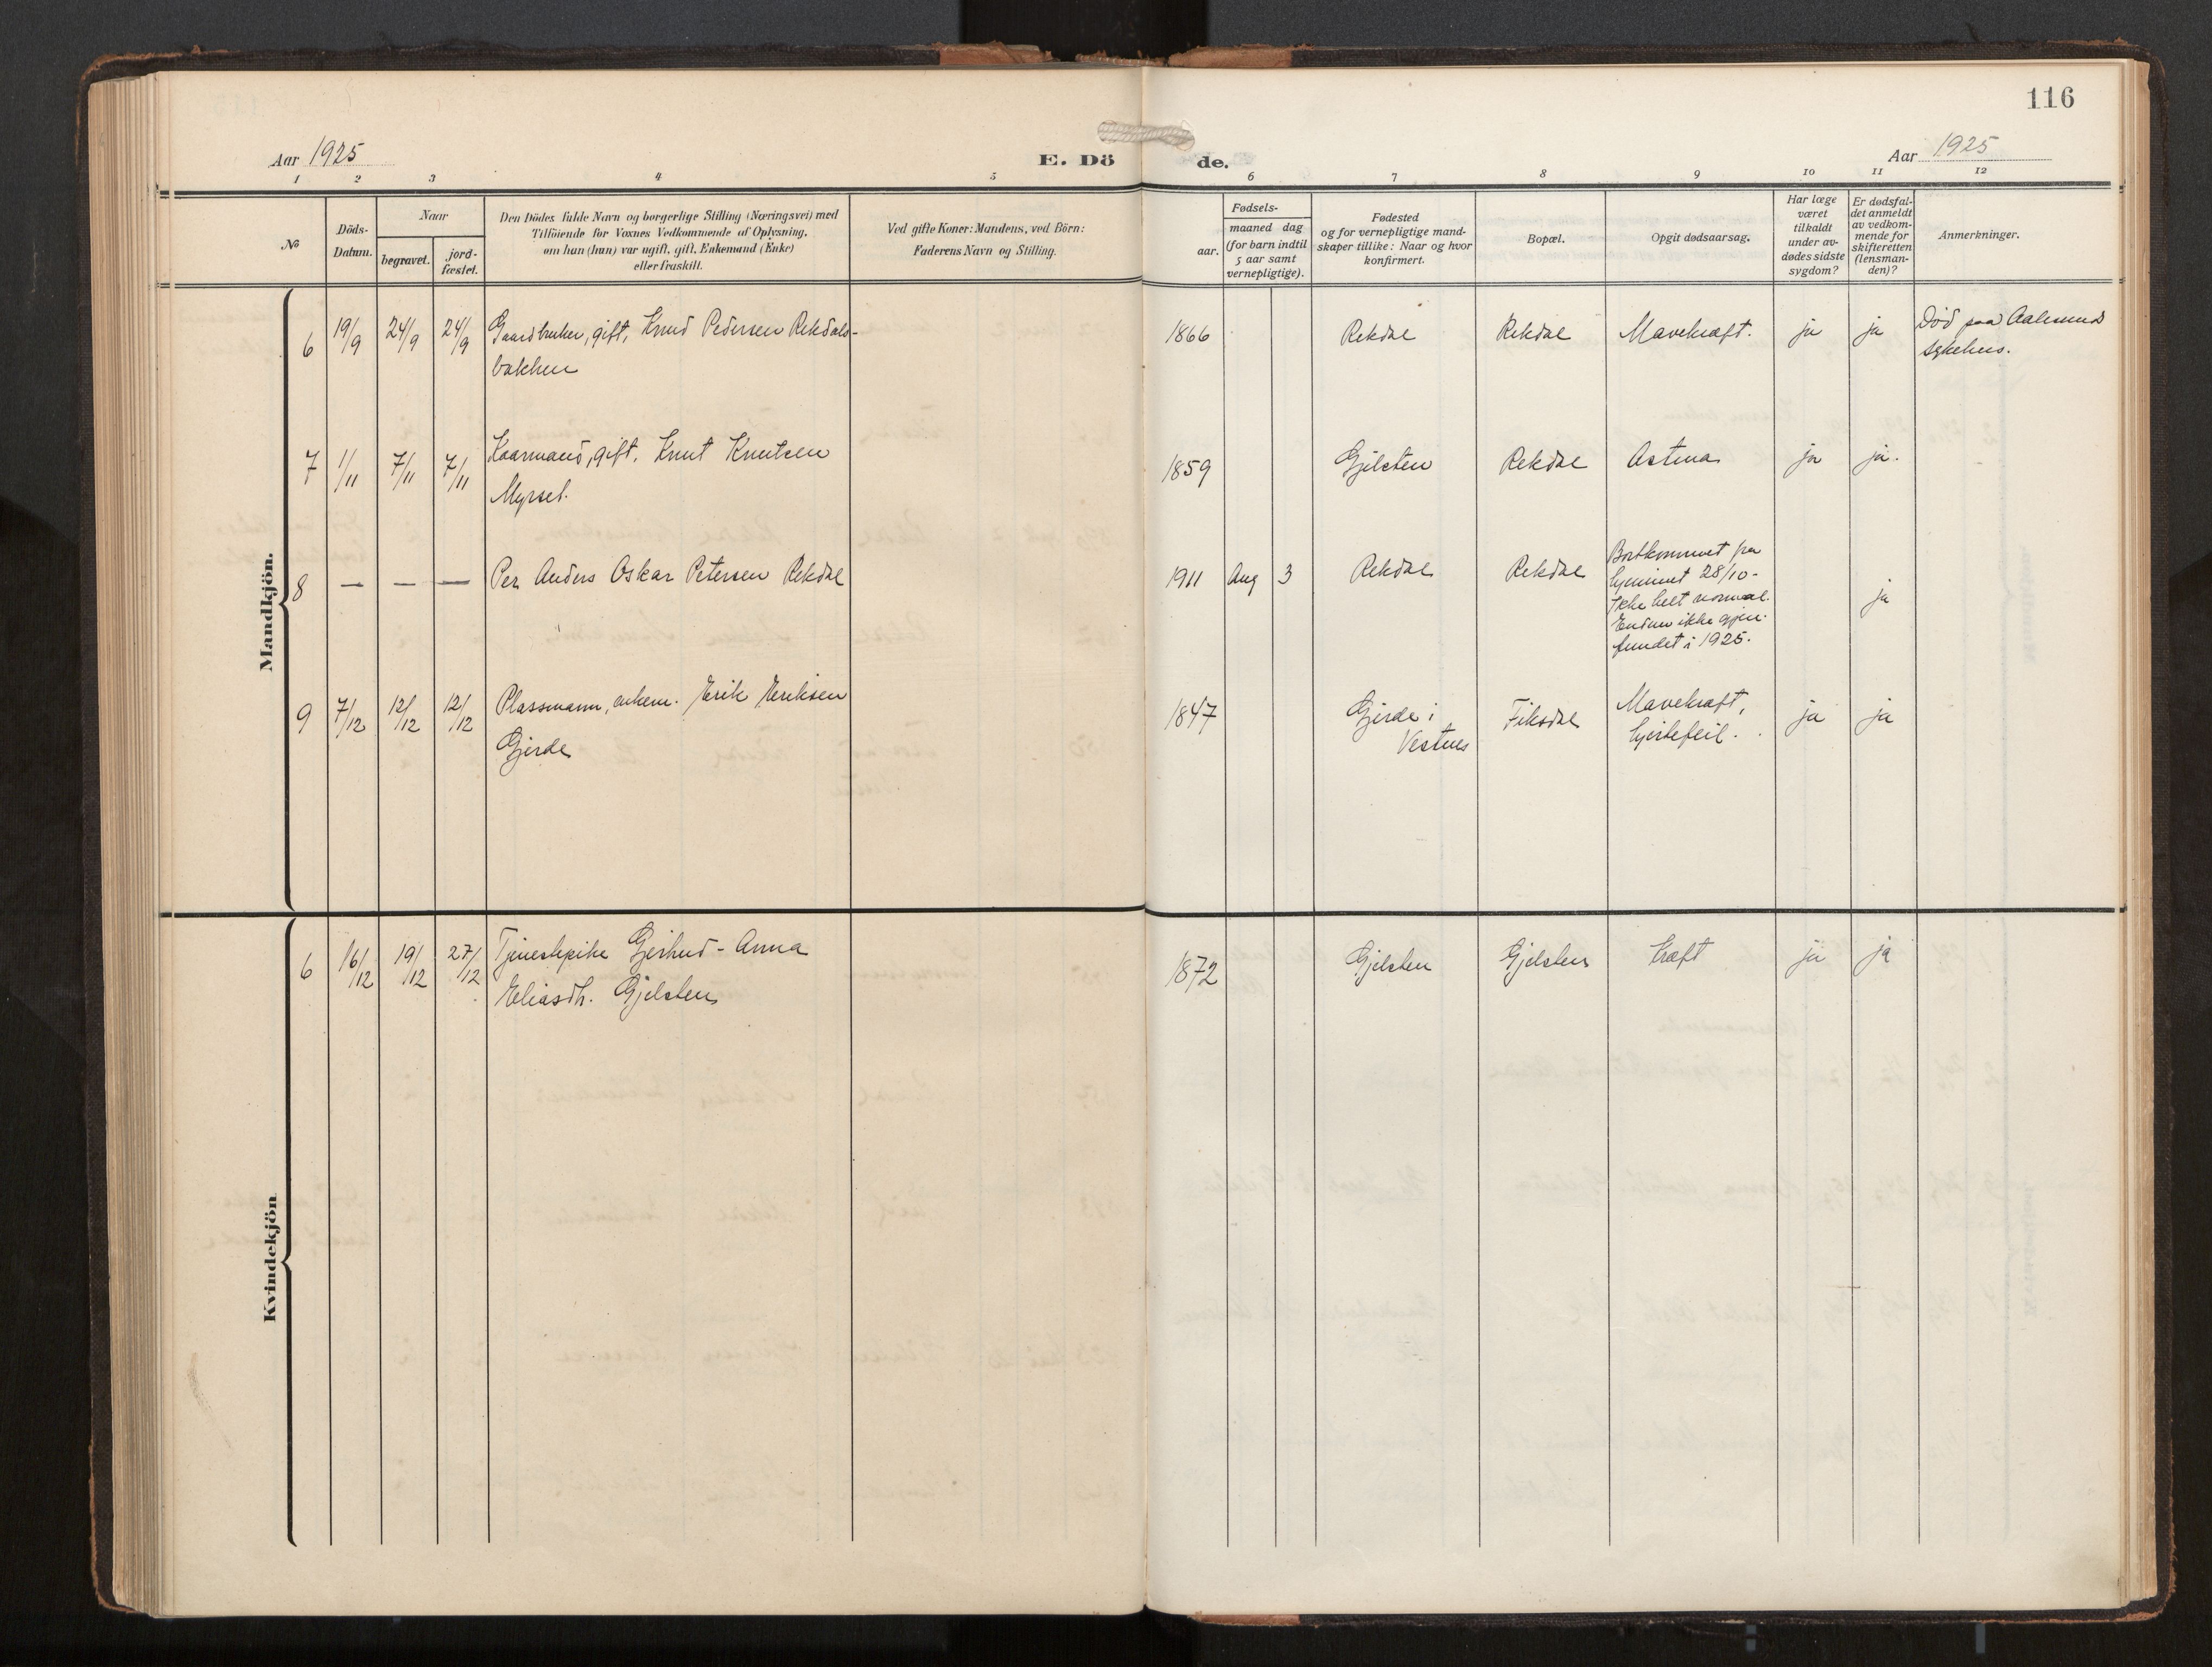 116
Aar 1925
E. Dö
de.
Aar 1925
1 2 3 4 5 6 7 8 9 10 11 12
No
Döds-
Datum.
Naar
begravet.
jord-
fæstet.
Den Dödes fulde Navn og borgerlige Stilling (Næringsvei) med
Tilföiende for Voxnes Vedkommende af Oplysning,
om han (hun) var ugift, gift, Enkemand (Enke)
eller fraskilt.
Ved gifte Koner: Mandens, ved Börn:
Faderens Navn og Stilling.
Fødsels-
aar.
maaned dag
(for barn indtil
5 aar samt
vernepligtige).
Fødested
og for vernepligtige mand-
skaper tillike: Naar og hvor
konfirmert.
Bopæl.
Opgit dødsaarsag.
Har læge
været
tilkaldt
under av-
dødes sidste
sygdom?
Er dødsfal-
det anmeldt
av vedkom-
mende for
skifteretten
(lensman-
den)?
Anmerkninger.
Mandkjön.
6 19/9 24/9 24/9 Gaardbruker, gift, Knud Pedersen Rekdals-
bakken
1866 Rekdal Rekdal Mavekræft. ja ja Död paa Aalesund
sykehus.
7 1/11 7/11 7/11 Kaarmand, gift, Knut Knutsen
Myrset.
1859 Gjelsten Rekdal Astma ja ja.
8 — — — Per Anders Oskar Petersen Rekdal
1911 Aug 3 Rekdal Rekdal Bortkommet fra
hjemmet 28/10-
Ikke helt normal.
Endnu ikke gjen-
fundet i 1925.
ja
9 7/12 12/12 12/12 Plassmann, enkem. Erik Eriksen
Gjerde
1847 Gjerde i
Vestnes
Fiksdal Mavekræft,
hjertefeil.
ja ja
Kvindekjön
6 16/12 19/12 27/12 Tjenestepike Gjerhud-Anna
Eliasdh. Gjelsten
1872 Gjelsten Gjelsten Kræft ja ja